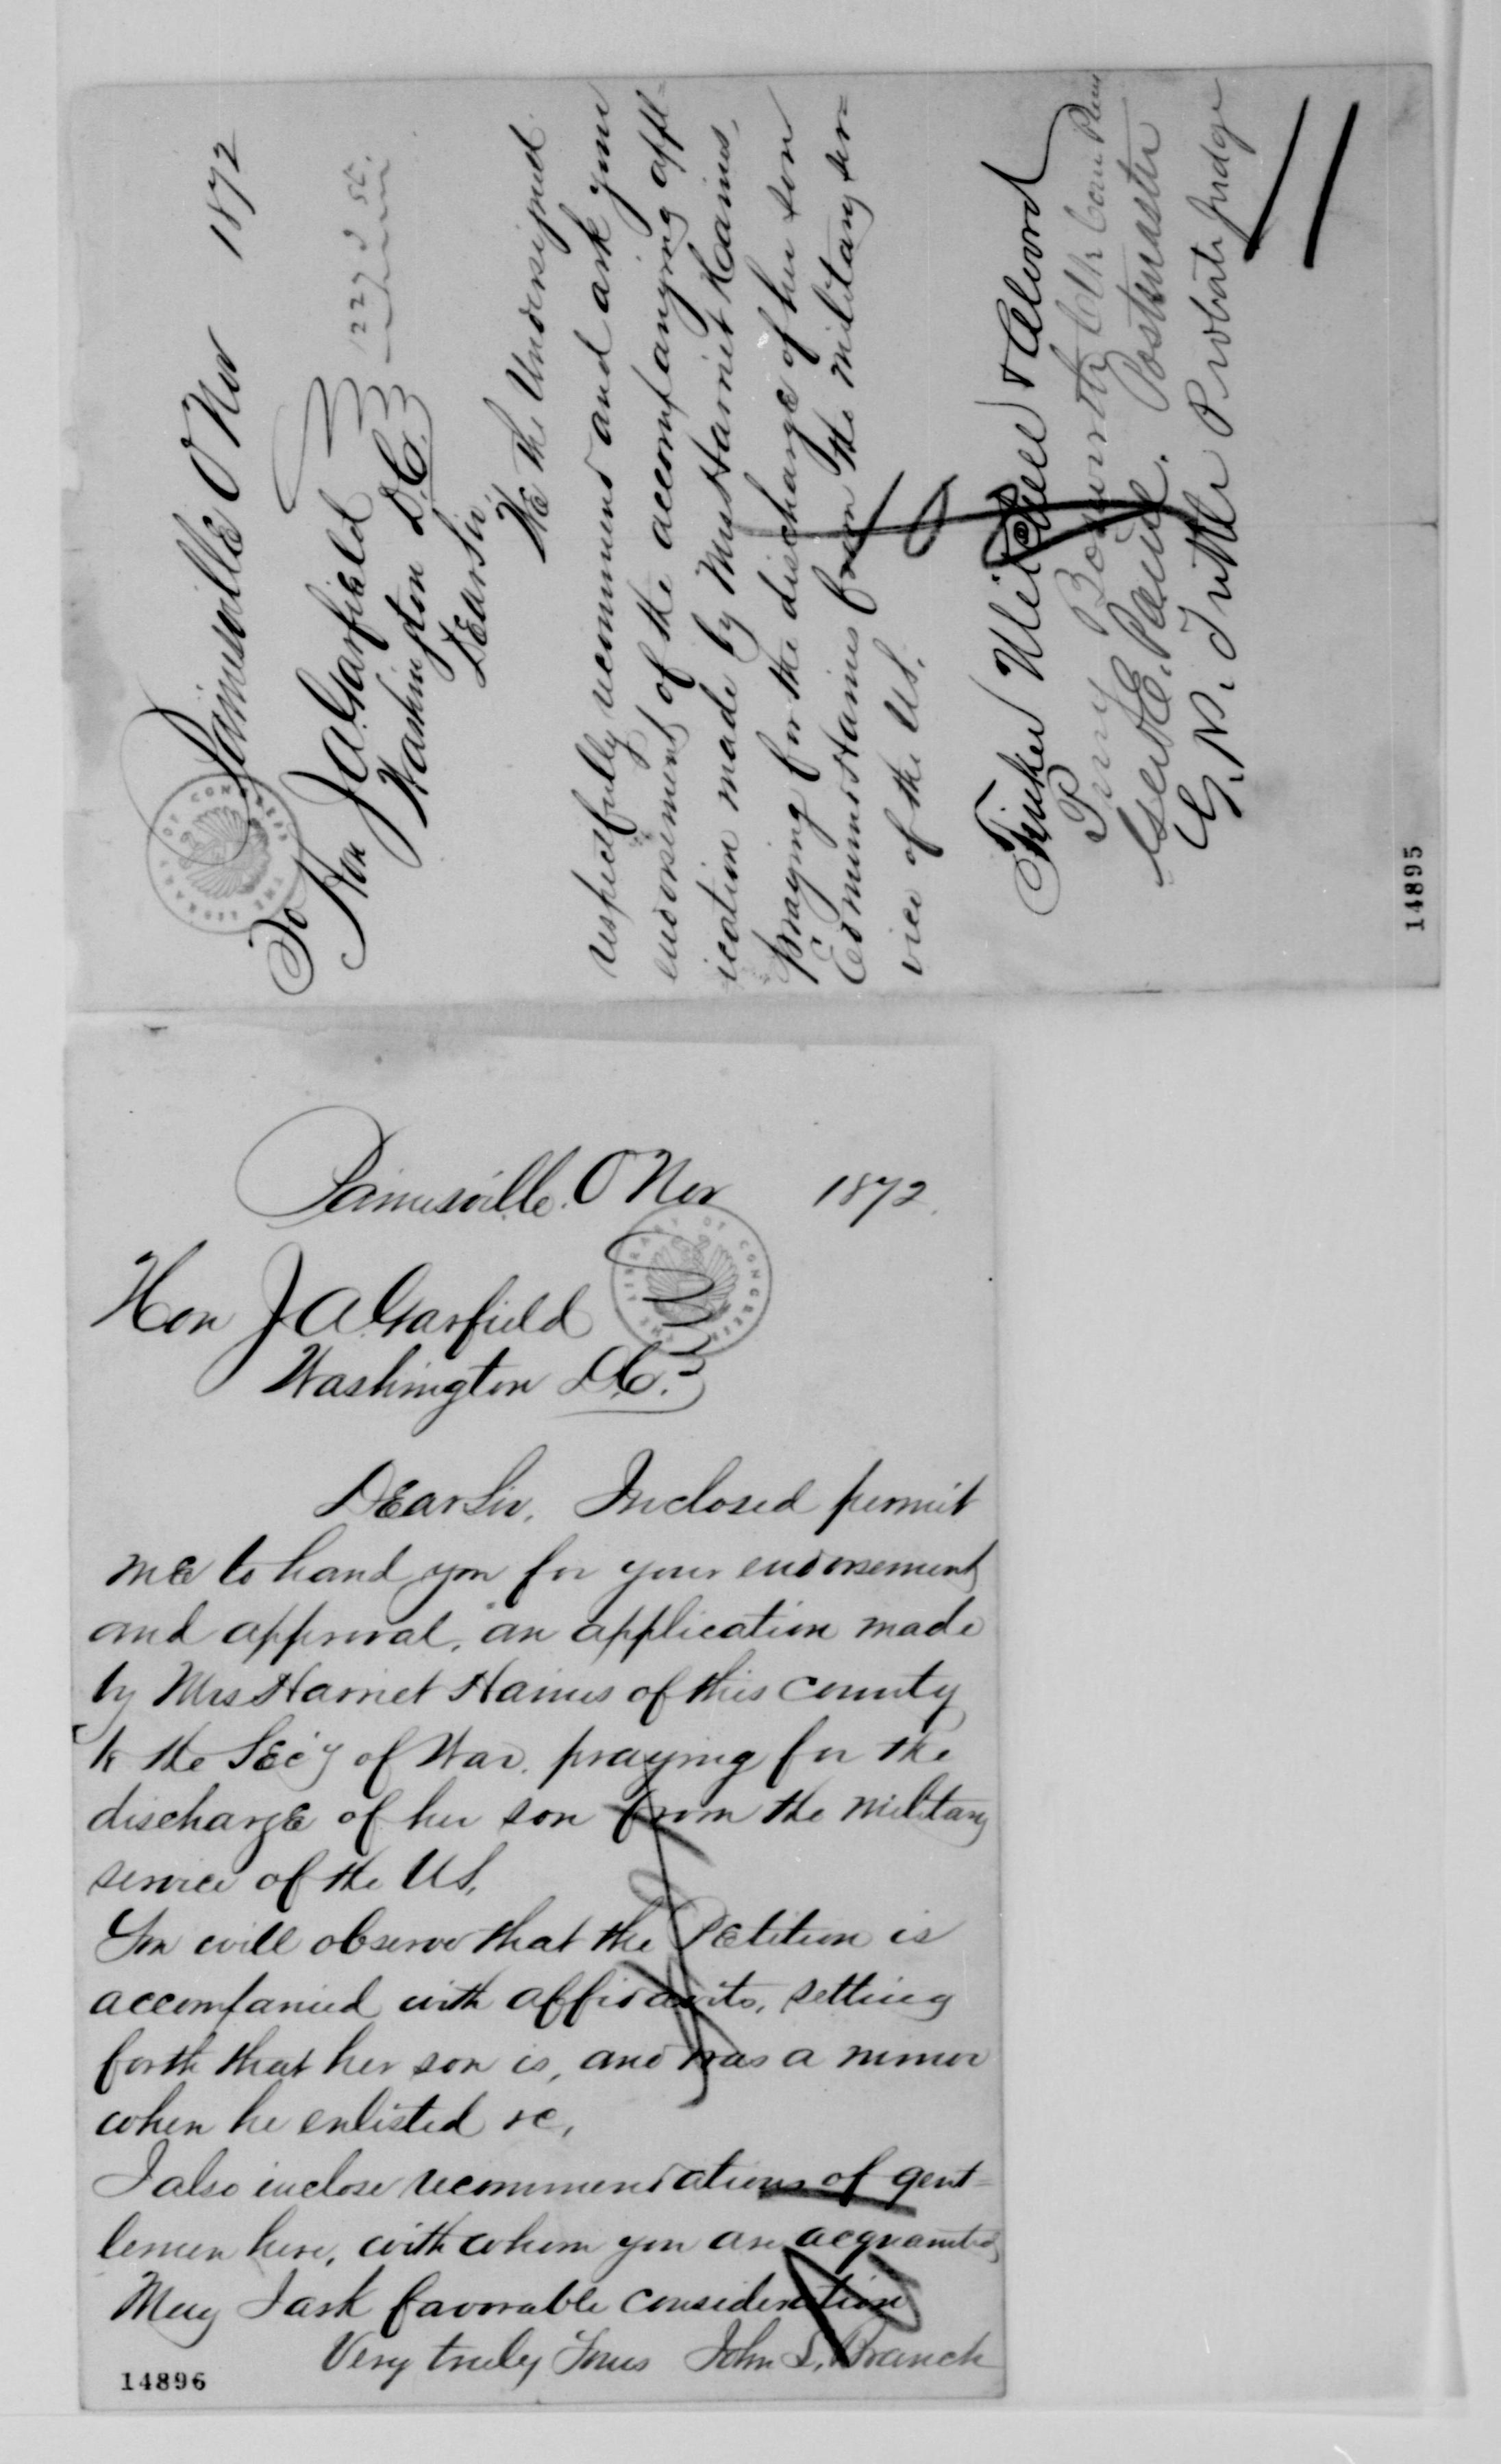 Painesville O Nov 1872
To
Hon J A Garfield
Washington D.C.
Dear Sir,
We the Undersigned
respectfully recommend and ask your
endorsement of the accompanying appl-
ication made by Mrs Harriet Haines,
praying for the discharge of her son
Edmund Haines from the military ser-
vice of the U.S.
Tinker &  Alvord
Perry Bosworth Clk Com Pleas
Paine. Postmaster
G. N. Tuttle Probate Judge
14895
Painesville. O Nov 1872.
Hon J A Garfield
Washington D.C.
Dear Sir, Inclosed permit
me to hand you for your endorsement
and approval, an application made
by Mrs Harriet Haines of this county
to the Sec'y of War, praying for the
discharge of her son from the military
service of the U.S,
You will observe that the Petition is
accompanied with affidavits, setting
forth that her son is, and was a minor
when he enlisted &c,
I also inclose recommendations of gent-
lemen here, with whom you are acquainted,
May I ask favorable consideration
Very truly Yours John S. Branch
14896
THE LIBRARY OF CONGRESS